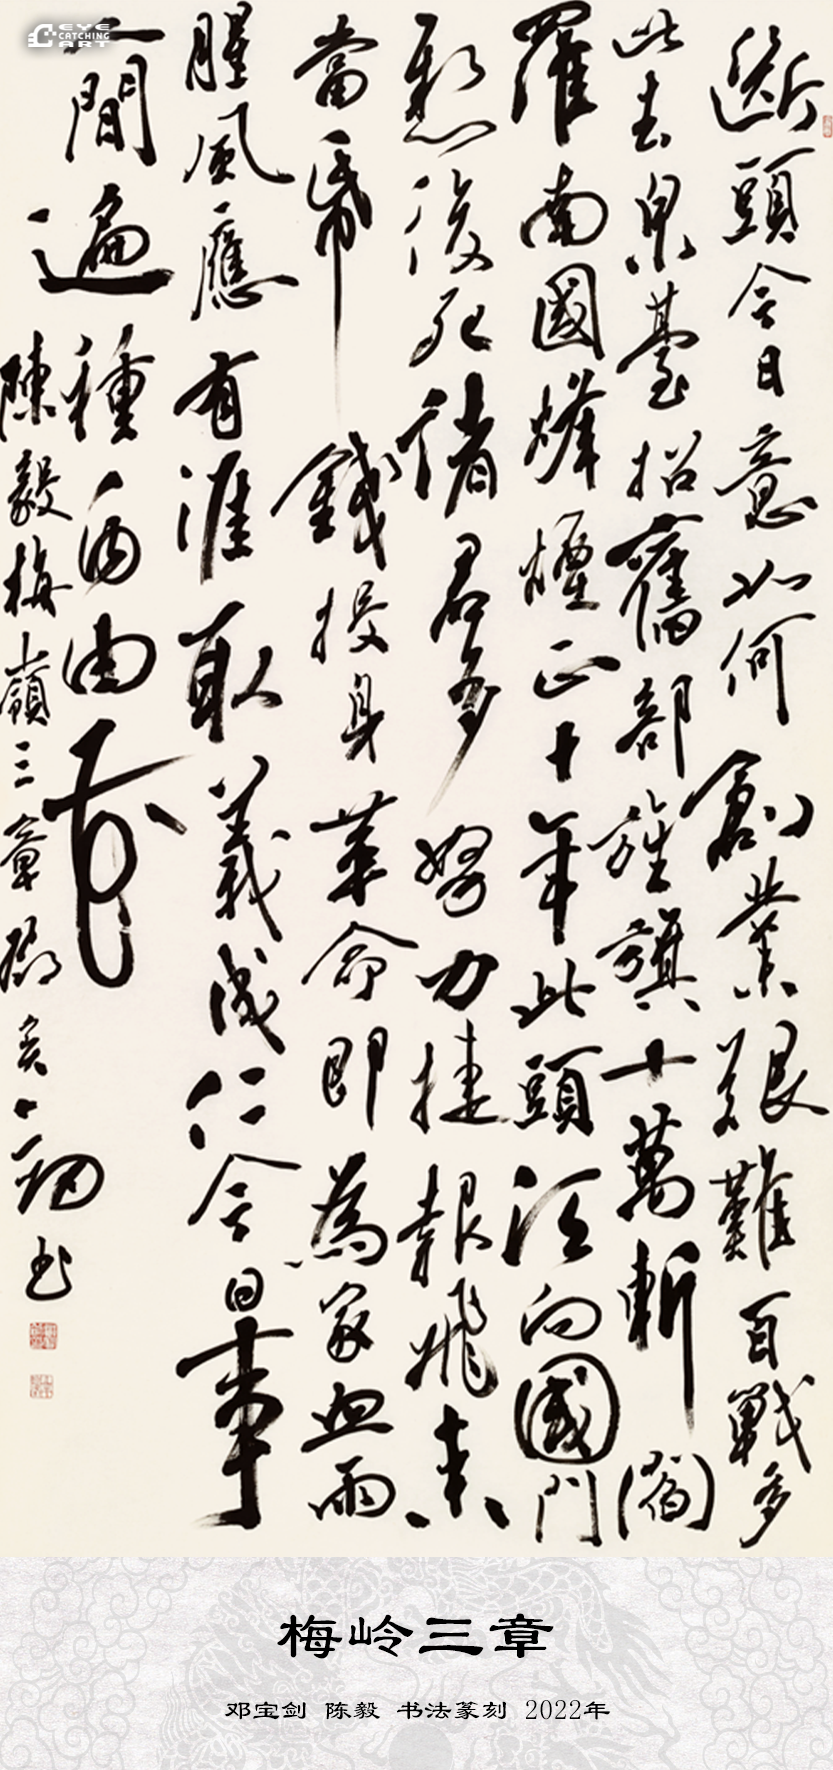 EYE CATCHING ART
斷頭今日意如何創業艱難百戰多
此去泉臺招舊部旌旗十萬斬閻
羅南國烽煙正十年此頭須向國門
懸後死諸君多努力捷報飛來
當帋錢投身革命即為家血雨
腥風應有涯取義成仁今日事
人間遍種自由花
陳毅梅嶺三章鄧書
梅岭三章
邓宝剑 陈毅 书法篆刻 2022年